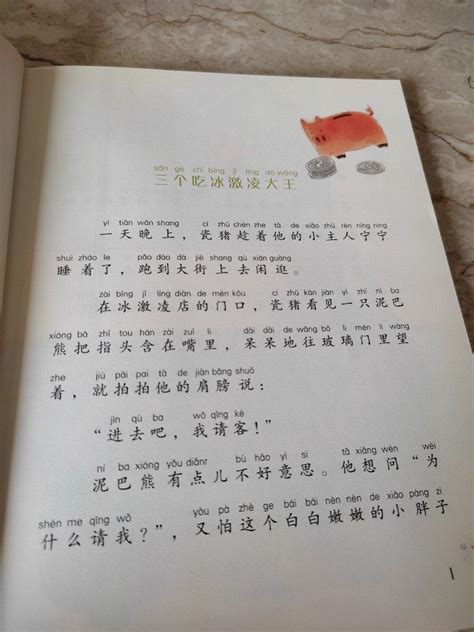 sān gè chī bīng jī líng dà wáng
三个吃冰激凌大王
yì tiān wǎn shang cí zhū chèn zhe tā de xiǎo zhǔ rén níng ning
一天晚上，瓷猪趁着他的小主人宁宁
shuì zháo le pǎo dào dà jiē shang qù xián guàng
睡着了，跑到大街上去闲逛。
zài bīng jī líng diàn de mén kǒu cí zhū kàn jiàn yì zhī ní bā
在冰激凌店的门口，瓷猪看见一只泥巴
xióng bǎ zhǐ tou hán zài zuǐ lǐ dāi dāi de wǎng bō li mén lǐ wàng
熊把指头含在嘴里，呆呆地往玻璃门里望
zhe jiù pāi pai tā de jiān bǎng shuō
着，就拍拍他的肩膀说：
jìn qù ba wǒ qǐng kè
“进去吧，我请客！”
ní bā xióng yǒu diǎnr bù hǎo yì si tā xiǎng wèn wèi
泥巴熊有点儿不好意思。他想问“为
shén me qǐng wǒ yòu pà zhè ge bái bái nèn nèn de xiǎo pàng zi
什么请我？”，又怕这个白白嫩嫩的小胖子
1